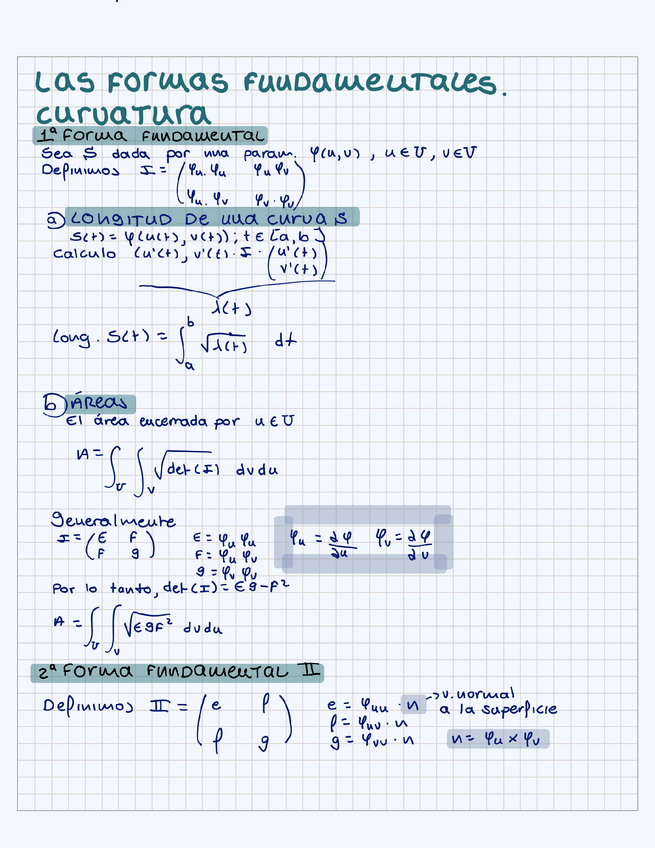 Las Formas Fundamentales.
Curvatura
1ª Forma Fundamental
Sea S dada por una param. φ(u,v) , u∈U, v∈V
Definimos I = (φu.φu φu φv
φu.φv φv.φv)
a) Longitud de una curva S
S(t) = φ(u(t), v(t)); t∈[a,b]
Calculo (u'(t), v'(t)· I · (u'(t)
v'(t))
λ(t)
Long. S(t) = ∫_a^b √λ(t) dt
b) Áreas
El área encerrada por u∈U
A = ∫_U ∫_V √det(I) dvdu
Generalmente
I = (E F E = φu φu φu = ∂φ/∂u φv = ∂φ/∂v
F g) F = φu φv
g = φv φv
Por lo tanto, det(I) = Eg-F²
A = ∫_U ∫_V √EgF² dvdu
2ª Forma Fundamental II
Definimos II = (e f e = φuu · n → v. normal a la superficie
f g) f = φuv · n
g = φvv · n n = φu × φv